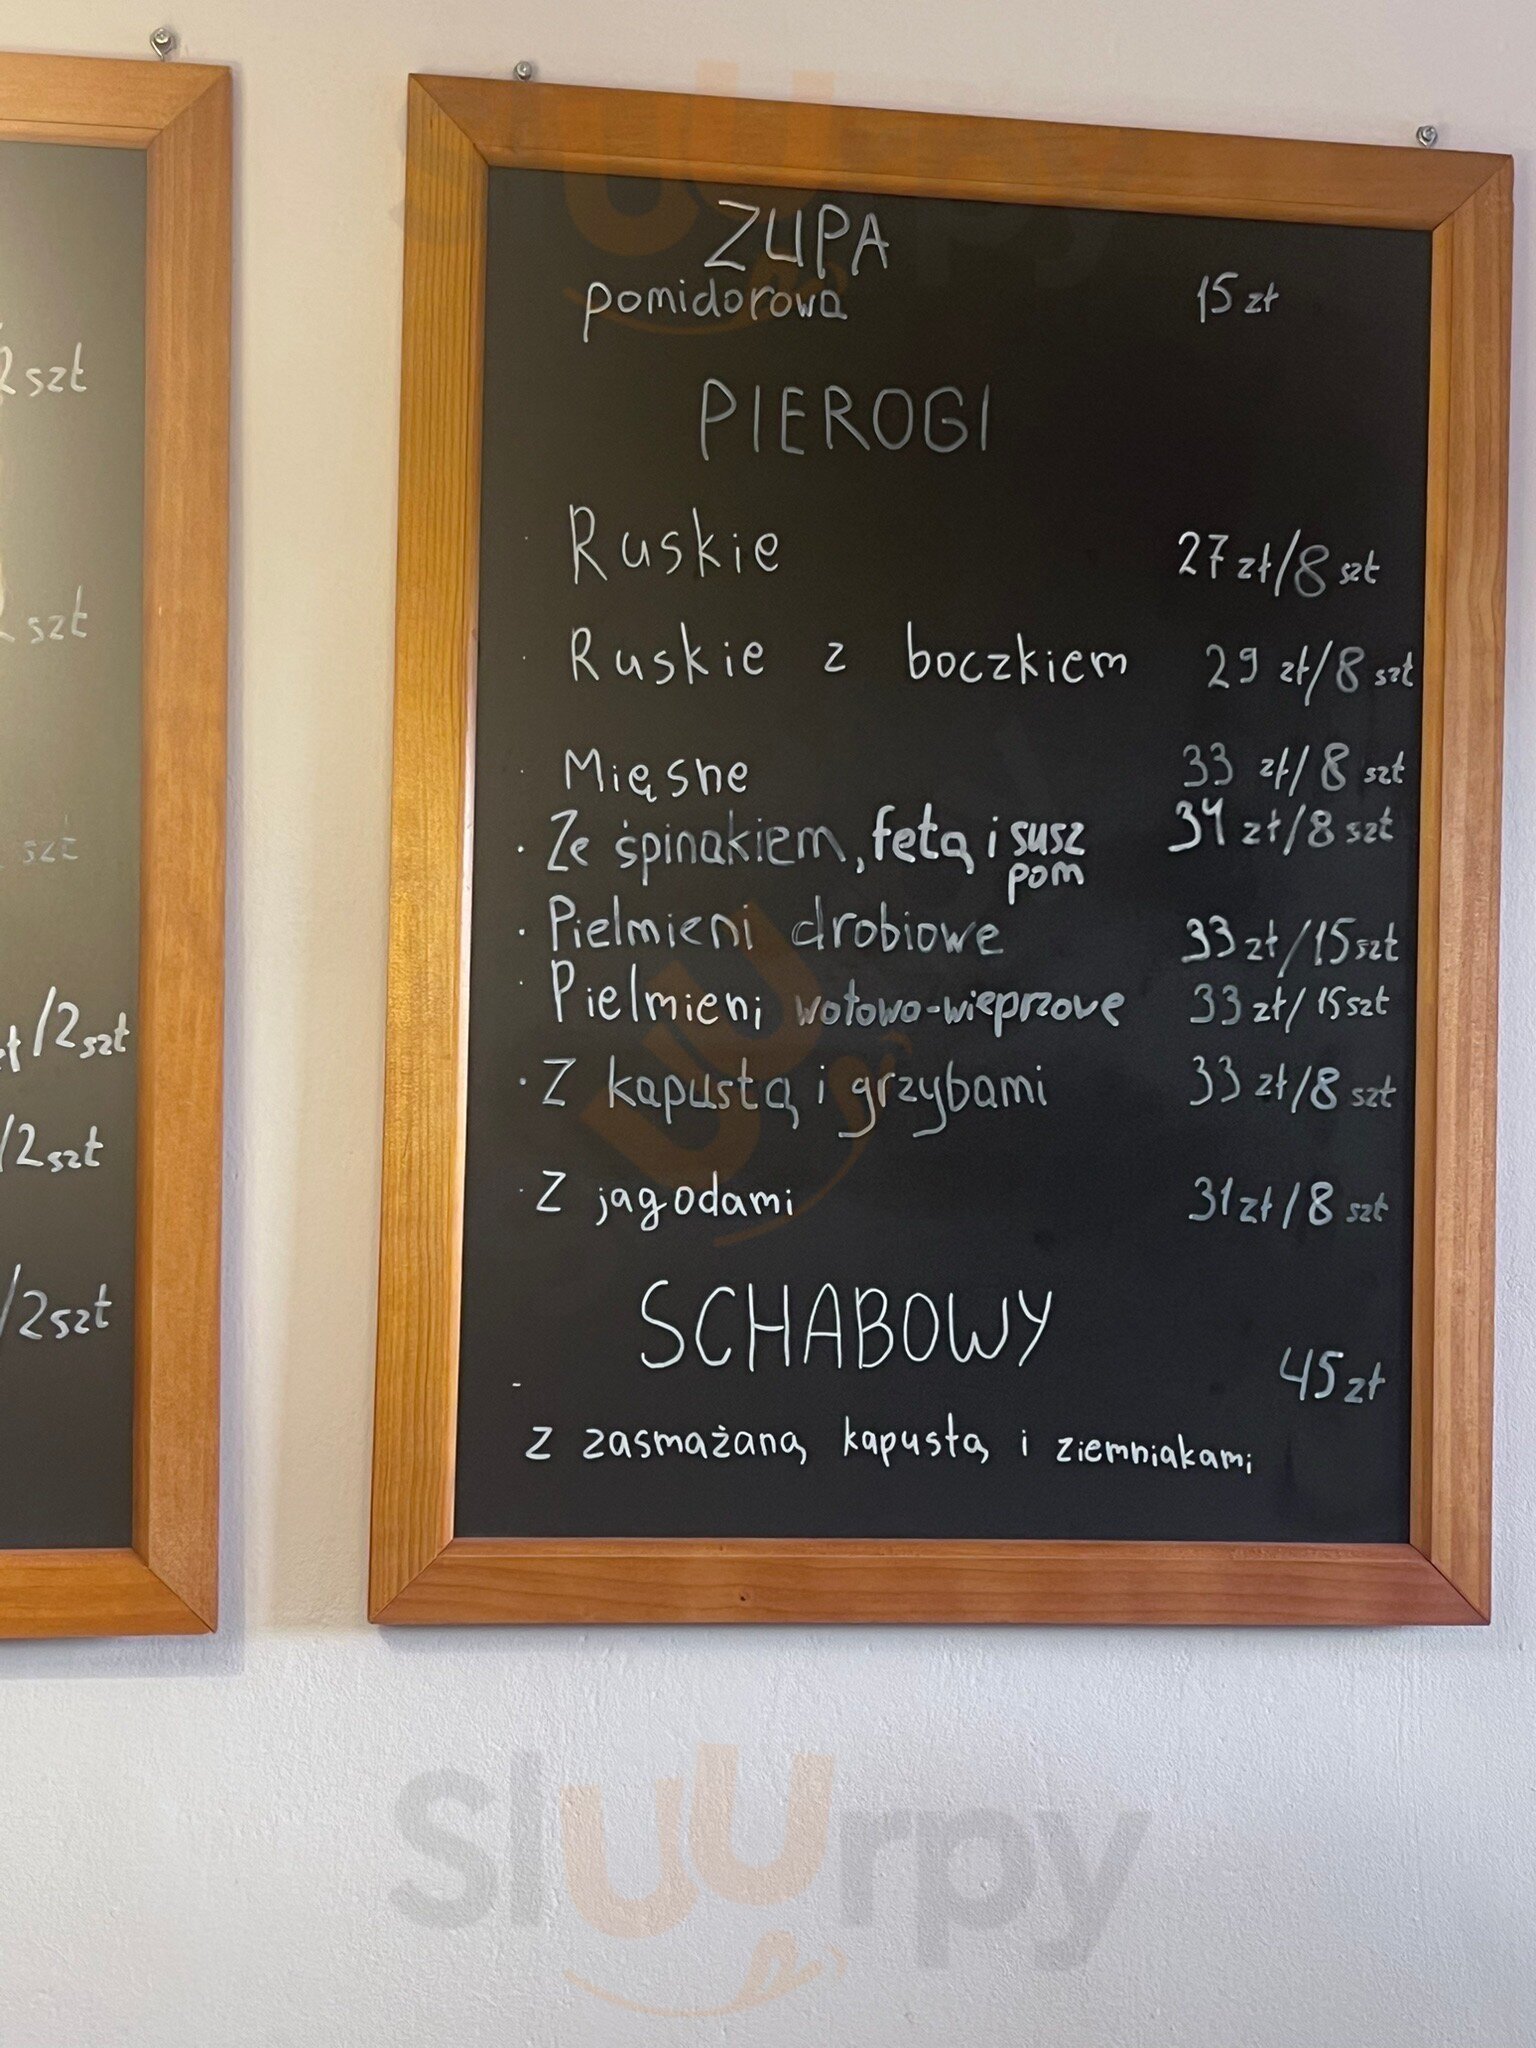 2 szt
2 szt
szt
zł/2 szt
/2 szt
/2 szt
ZUPA
pomidorowa 15 zł
PIEROGI
· Ruskie 27 zł/8 szt
· Ruskie z boczkiem 29 zł/8 szt
· Mięsne 33 zł/8 szt
· Ze śpinakiem, fetą i susz 34 zł/8 szt
pom
· Pielmieni drobiowe 33 zł/15 szt
· Pielmieni wołowo-wieprzove 33 zł/15 szt
· Z kapustą i grzybami 33 zł/8 szt
· Z jagodami 31 zł/8 szt
SCHABOWY
- 45 zł
z zasmażaną kapustą i ziemniakami
sluurpy